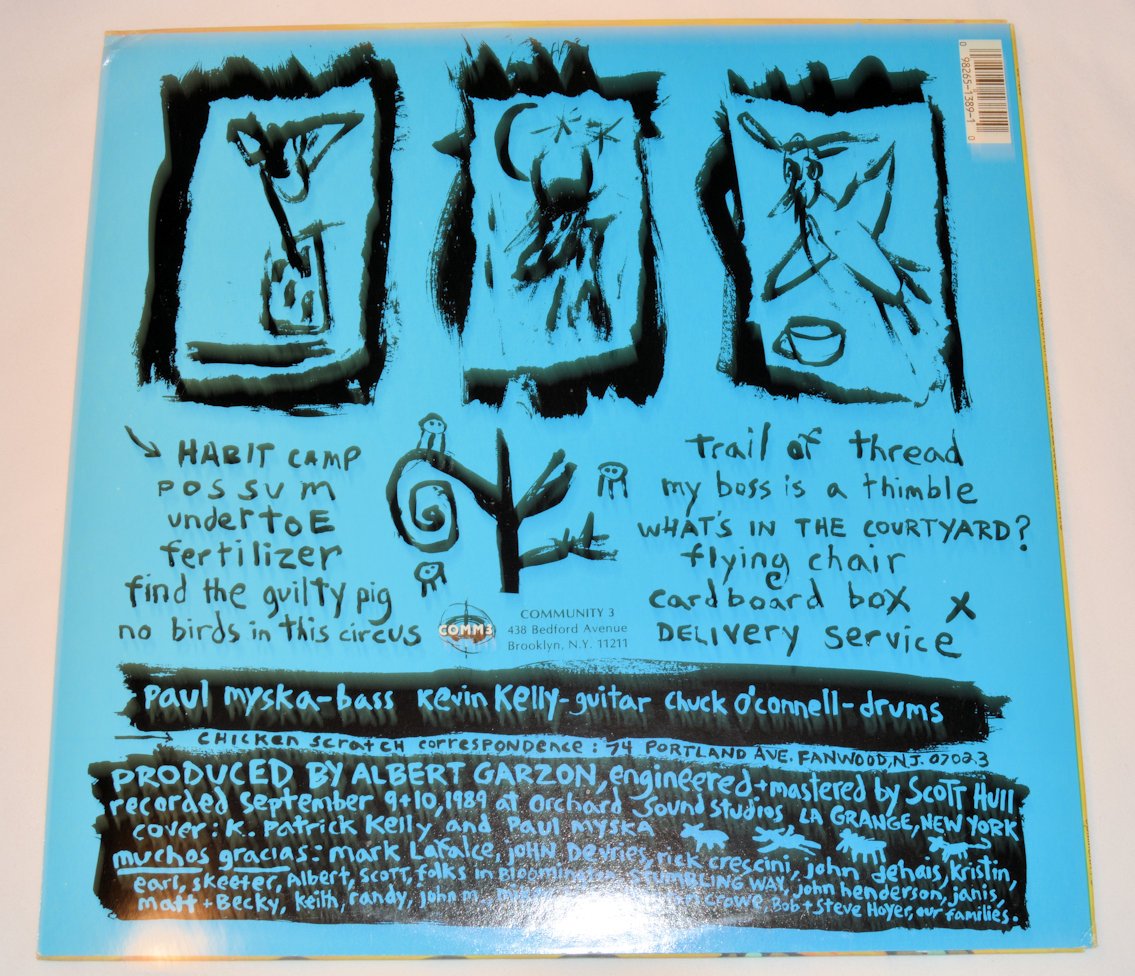 0 98265-1389-1 0
HABIT CAMP
possum
undertoE
fertilizer
find the guilty pig
no birds in this circus
trail of thread
my boss is a thimble
WHAT'S IN THE COURTYARD?
flying chair
cardboard box
DELIVERY service
COMM3
COMMUNITY 3
438 Bedford Avenue
Brooklyn, N.Y. 11211
paul myska-bass kevin Kelly-guitar chuck o'connell-drums
CHICKEN SCRATCH correspondence: 74 PORTLAND AVE. FANWOOD, NJ. 07023
PRODUCED BY ALBERT GARZON, engineered+mastered by SCOTT HULL
recorded september 9+10, 1989 at Orchard Sound Studios, LA GRANGE, NEW YORK
cover: K. Patrick Kelly and Paul MYSKA
muchos gracias: mark LaFalce, JOHN Devries, rick crescini, john dehais, Kristin,
earl, skeeter, Albert, Scott, folks in Bloomington, STUMBLING WAY, john henderson, janis,
matt + Becky, keith, randy, john m., crowe, Bob + Steve Hoyer, our families.